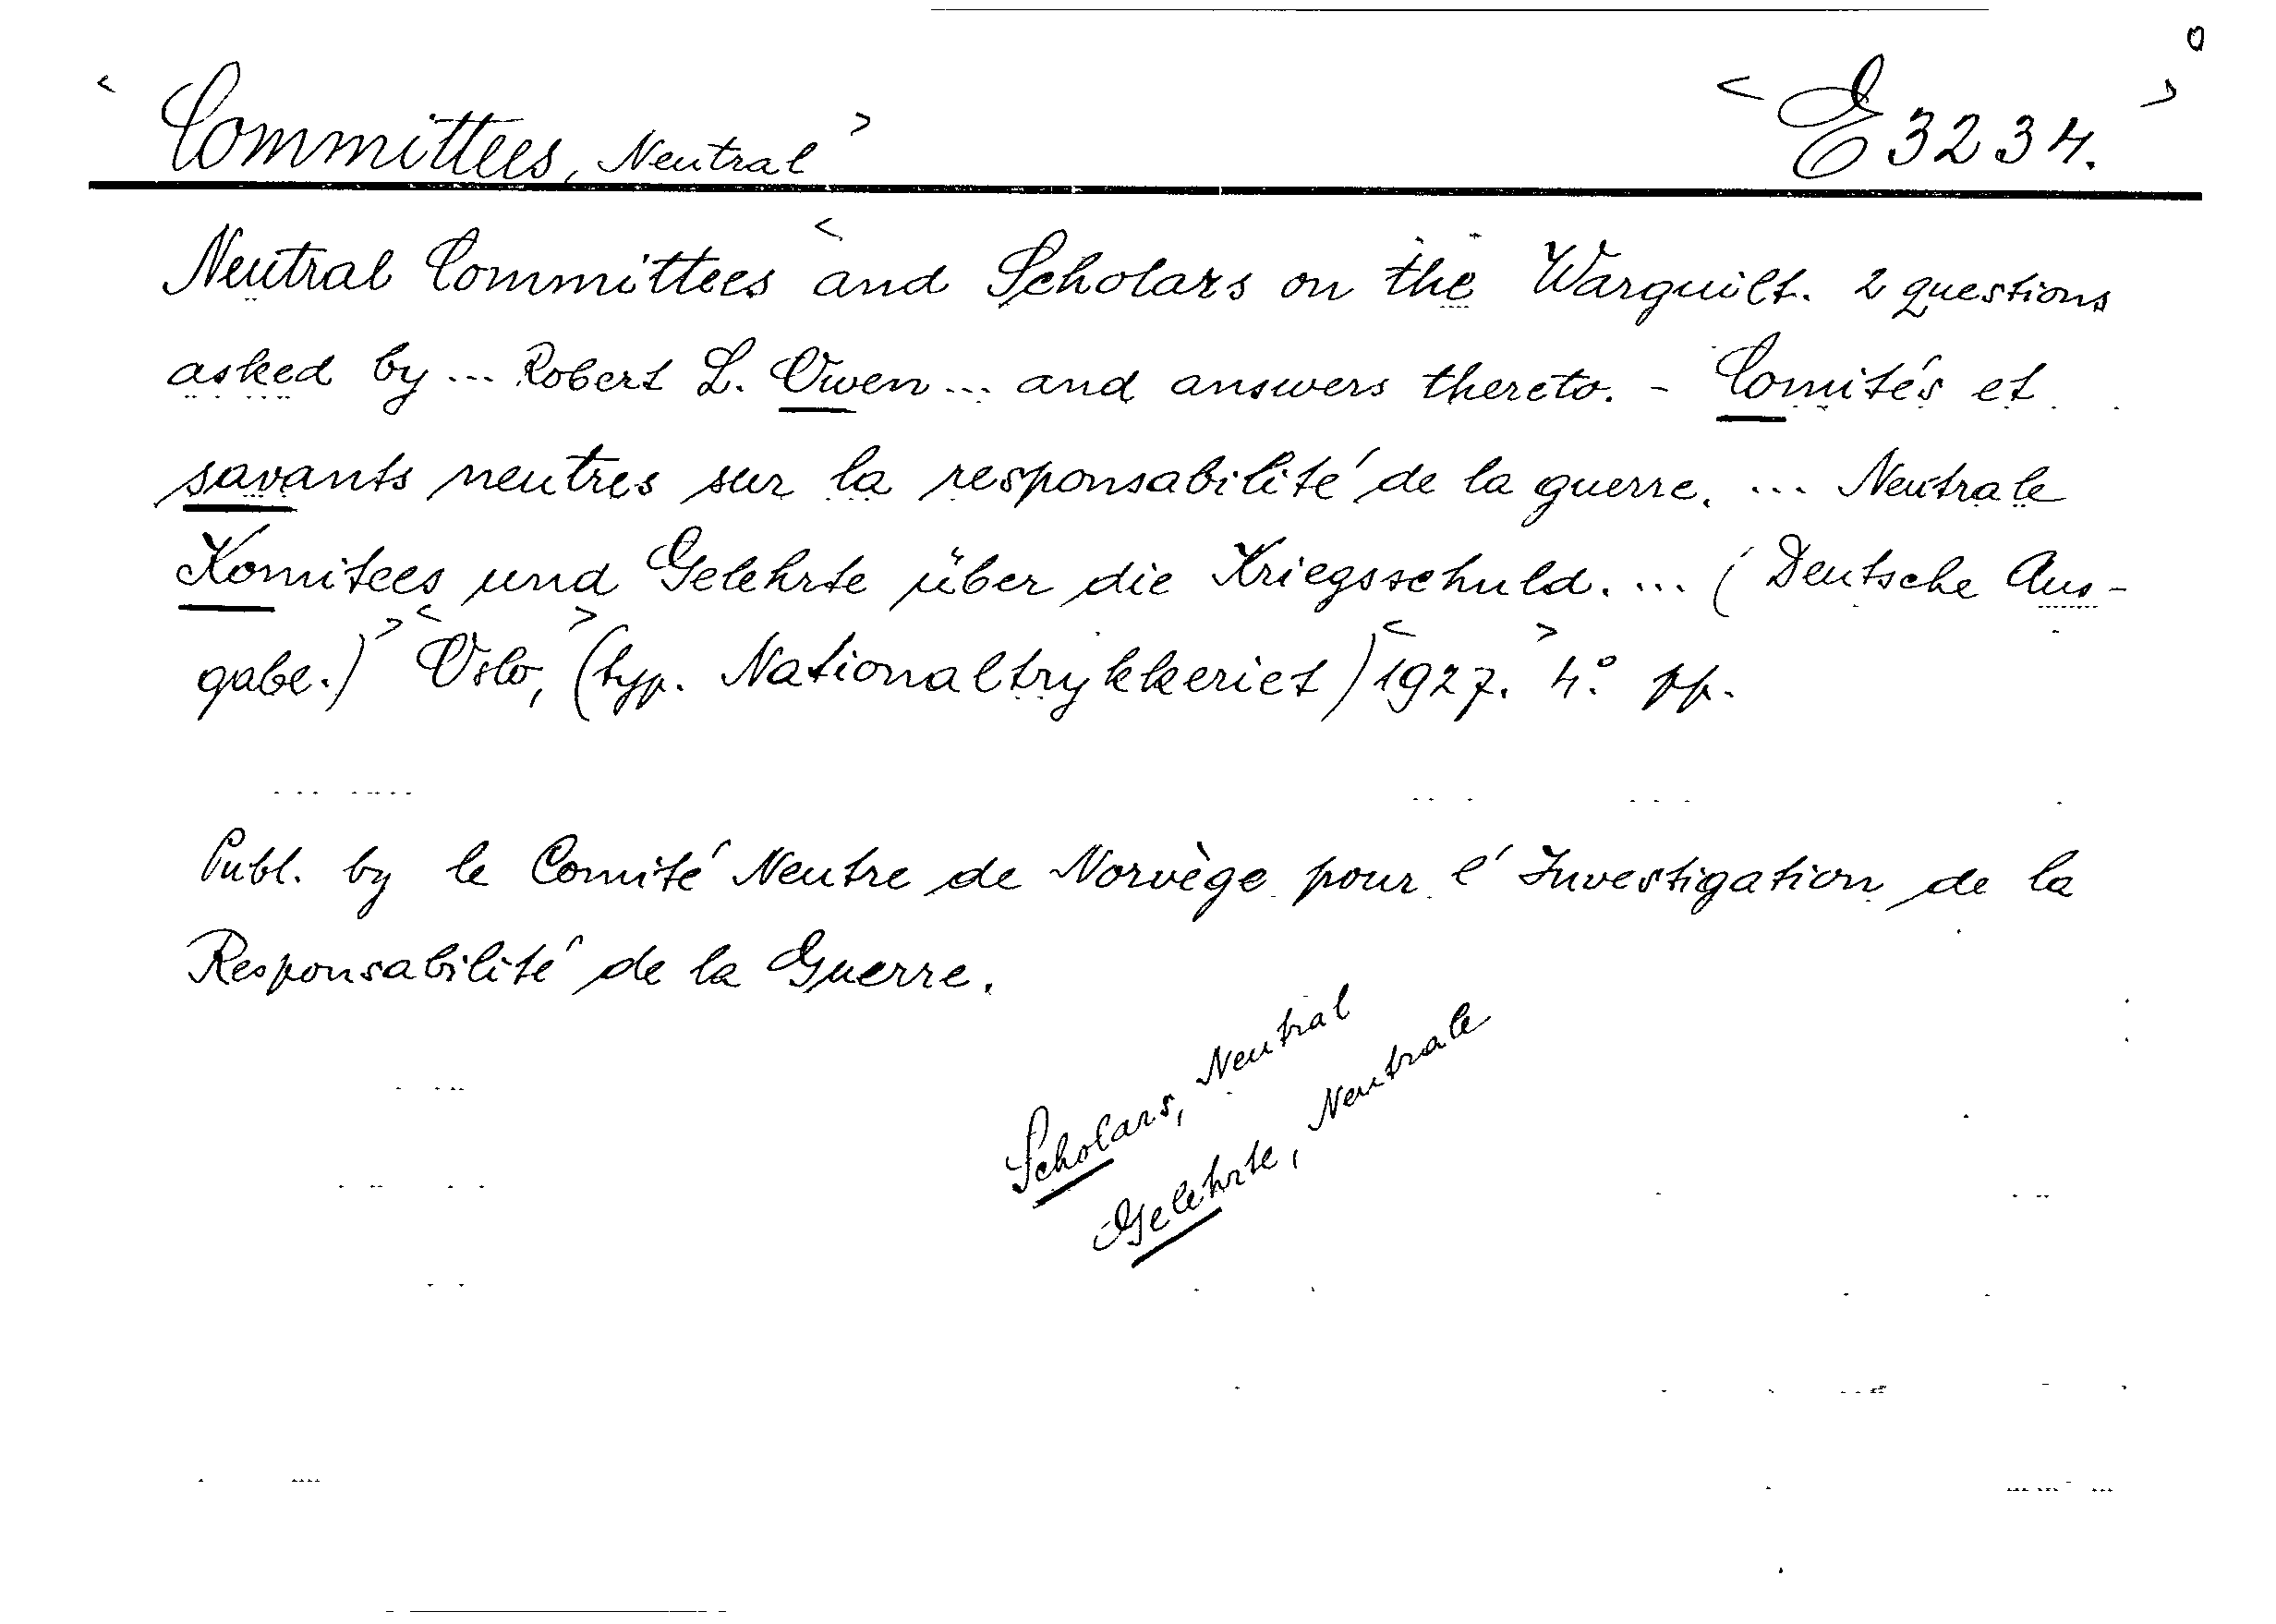 0
< Committees, Neutral > < E 3234. >
Neutral Committees < and Scholars on the Warguilt. 2 questions
asked by ... Robert L. Owen ... and answers thereto. - Comités et
savants neutres sur la responsabilité de la guerre. ... Neutrale
Komitees und Gelehrte über die Kriegsschuld. ... (Deutsche Aus-
gabe.) > < Oslo, > (typ. Nationaltrykkeriet) < 1927. > 4° pp.
Publ. by le Comité Neutre de Norvège pour l'Investigation de la
Responsabilité de la Guerre.
Scholars, Neutral
Gelehrte, Neutrale